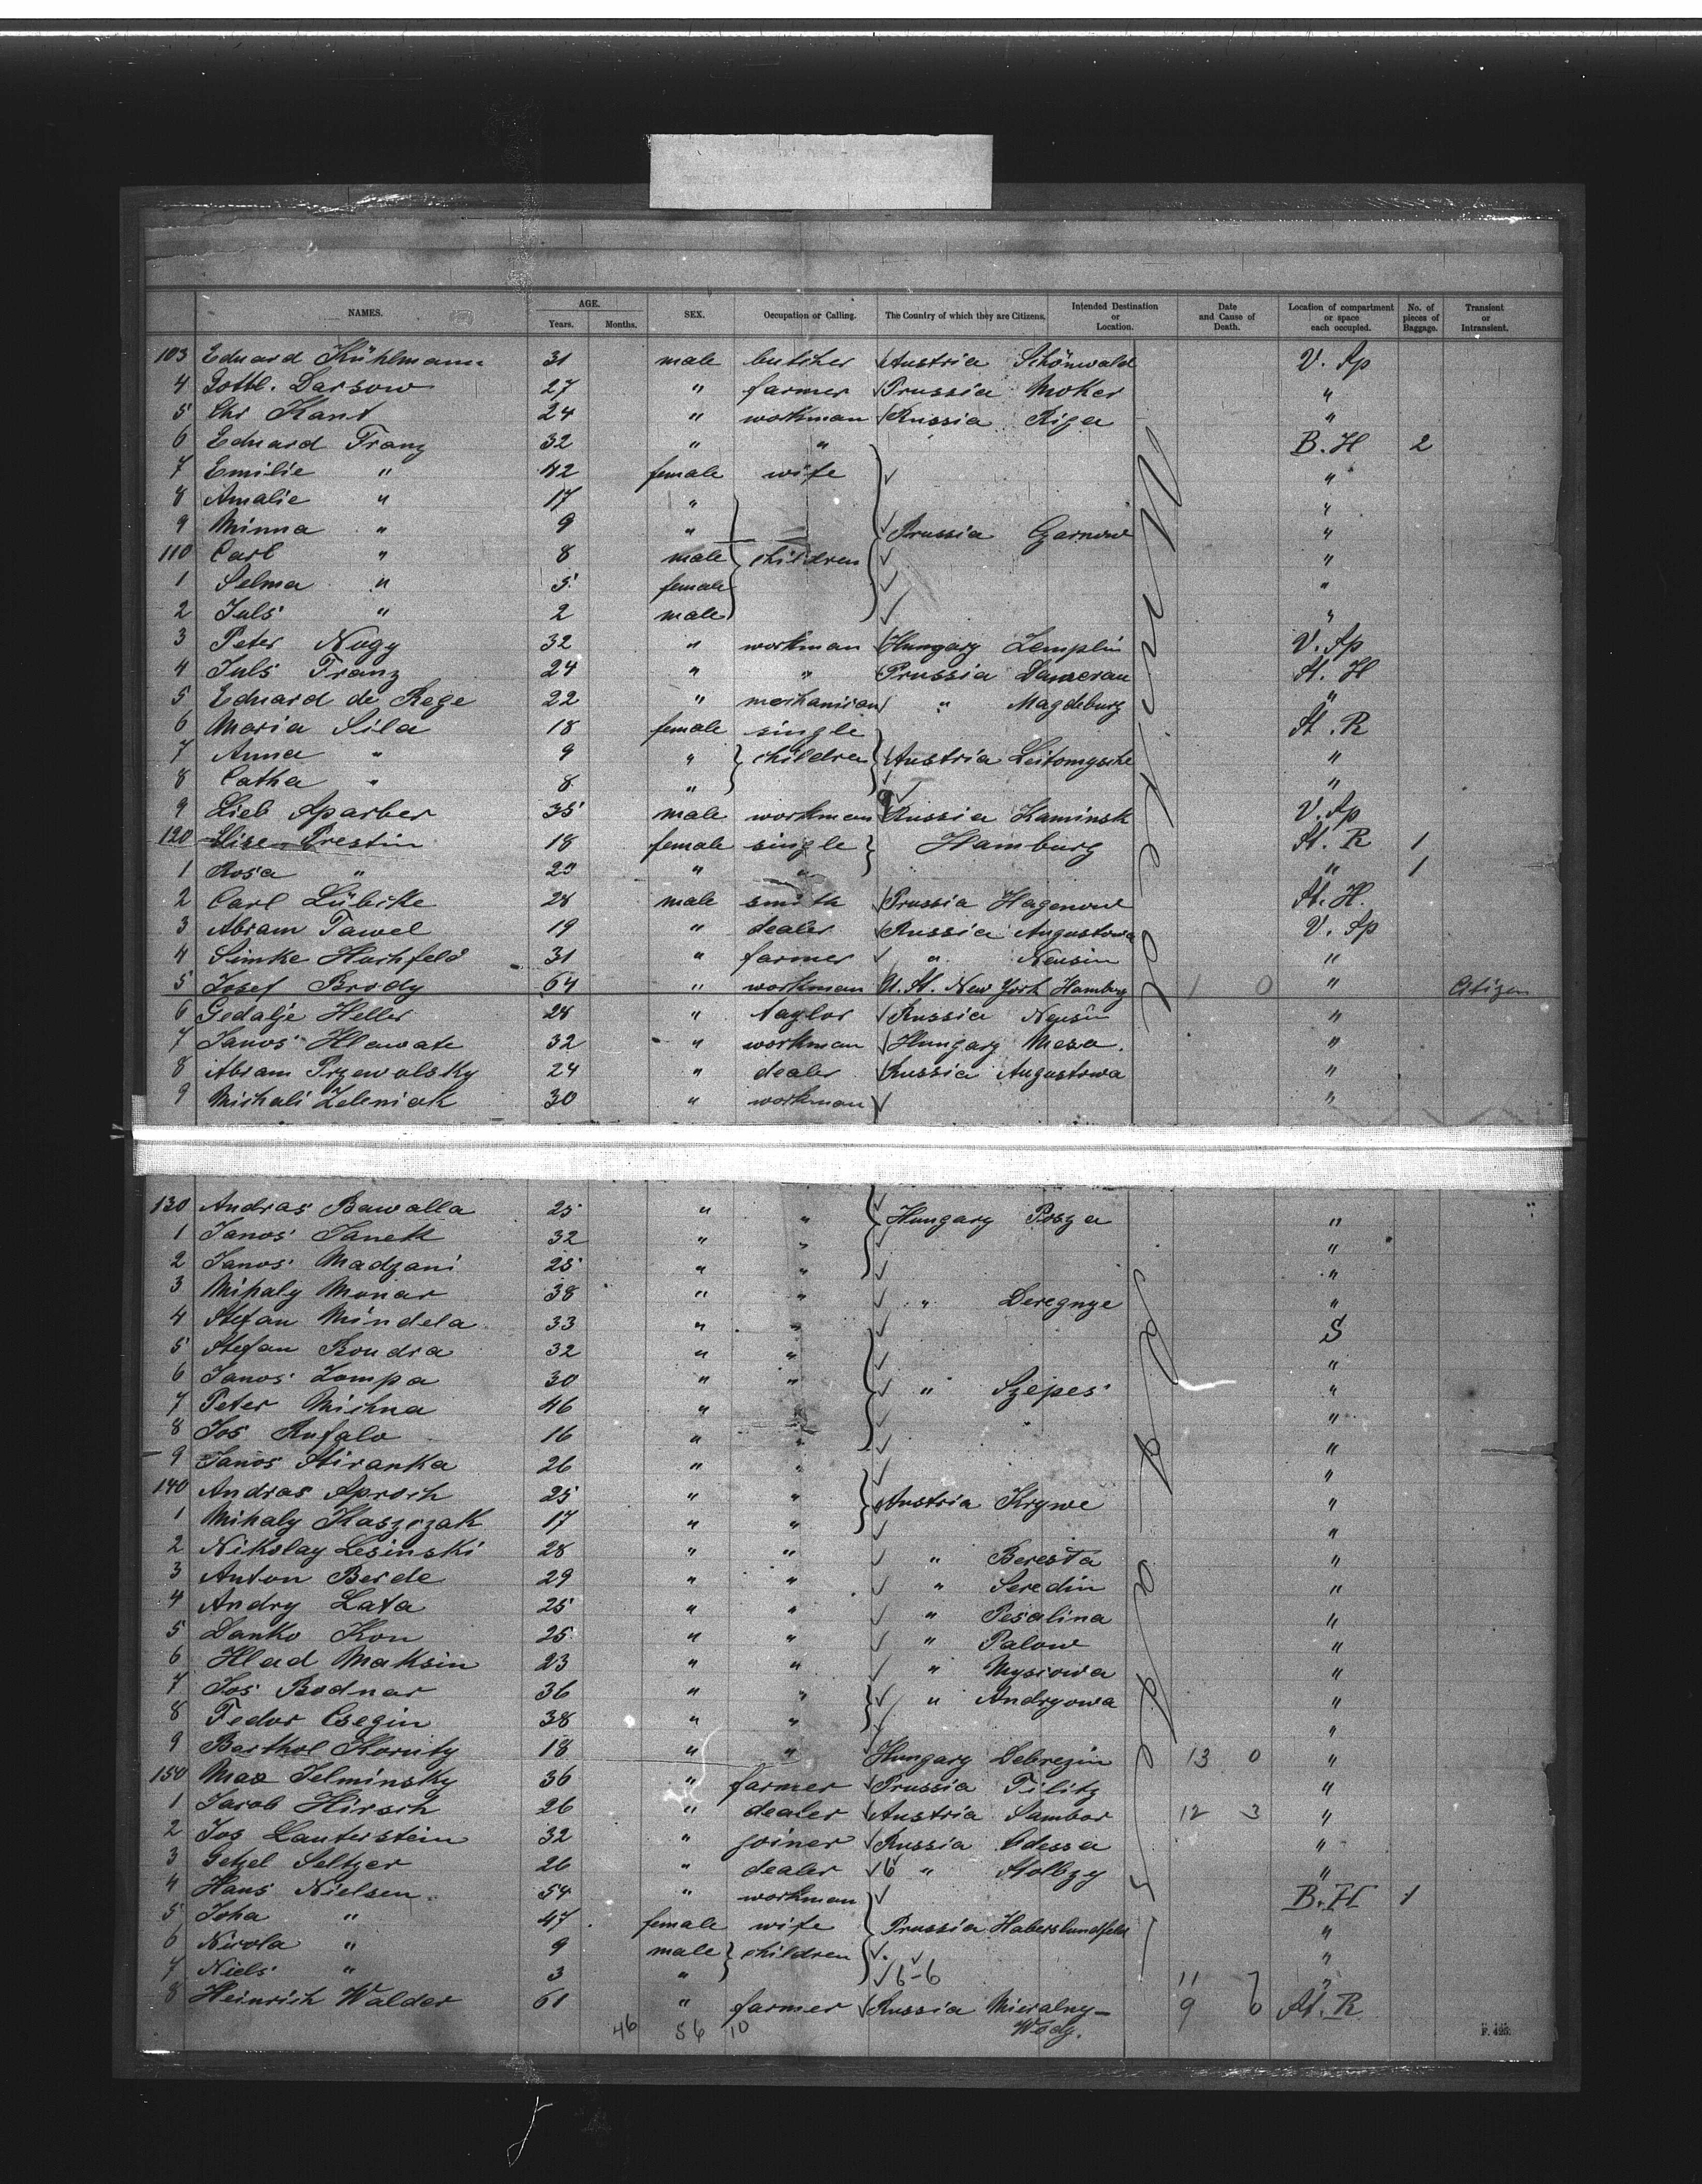 NAMES. AGE. Years. Months. SEX. Occupation or Calling. The Country of which they are Citizens. Intended Destination or Location. Date and Cause of Death. Location of compartment or space each occupied. No. of pieces of Baggage. Transient or Intransient.
103 Eduard Kühlmann 31 male butcher Austria Schönwald V. Sp
4 Gottl. Darsow 27 " farmer Prussia Moker "
5 Chr Kant 24 " workman Russia Riga "
6 Eduard Franz 32 " " B. H 2
7 Emilie " 42 female wife "
8 Amalie " 17 " "
9 Minna " 9 " Prussia Czarnow "
110 Carl " 8 male children "
1 Selma " 5 female "
2 Juls " 2 male "
3 Peter Nagy 32 " workman Hungary Zemplin V. Sp
4 Juls Franz 24 " " Prussia Damerau St. H
5 Eduard de Rege 22 " mechanican " Magdeburg "
6 Maria Sila 18 female single St. R
7 Anna " 9 " children Austria Leitomyschl "
8 Catha " 8 " "
9 Lieb Sparber 35 male workman Russia Kaminsk V. Sp
120 Elise Prestin 18 female single Hamburg St. R 1
1 Rosa " 23 " " " 1
2 Carl Lübcke 28 male smith Prussia Hagenow St. H.
3 Abram Tawel 19 " dealer Russia Augustowa V. Sp
4 Simke Hochfeld 31 " farmer " Neusin "
5 Josef Brody 64 " workman U. St. New York Hamburg 1 0 " Citizen
6 Gedalje Heller 28 " taylor Russia Neusin "
7 Janos Hlawate 32 " workman Hungary Mesa. "
8 Abram Przewolsky 24 " dealer Russia Augustowa "
9 Michali Zeleniak 30 " workman "
130 Andras Bawalla 25 " " Hungary Posza "
1 Janos Janek 32 " " "
2 Janos Madzani 25 " " "
3 Mihaly Monar 38 " " " Deregnye "
4 Stefan Mindela 33 " " S
5 Stefan Bondra 32 " " "
6 Janos Zompa 30 " " " Szepes "
7 Peter Michna 46 " " "
8 Jos Rufalo 16 " " "
9 Janos Stiranka 26 " " "
140 Andras Sproch 25 " " Austria Krywe "
1 Mihaly Kaszczak 17 " " "
2 Nikolay Lesinski 28 " " " Beresta "
3 Anton Berde 29 " " " Seredin "
4 Andry Lata 25 " " " Pesalina "
5 Danko Kon 25 " " " Palow "
6 Hlad Maksin 23 " " " Mysiowa "
7 Jos Bodnar 36 " " " Andryowa "
8 Fedor Csegin 38 " " "
9 Berthol Kornty 18 " " Hungary Debrezin 13 0 "
150 Max Jelminsky 36 " farmer Prussia Tilitz "
1 Jacob Hirsch 26 " dealer Austria Sambor 12 3 "
2 Jos Lauterstein 32 " joiner Russia Odessa "
3 Getzel Seltzer 26 " dealer 6 " Stolbzy "
4 Hans Nielsen 54 " workman B. H 1
5 Joha " 47 female wife Prussia Haberslundfeld "
6 Nicola " 9 male children "
7 Niels " 3 " 6-6 11 7 "
8 Heinrich Walder 61 " farmer Russia Mieralny- 9 6 St. R
46 56 10 Wody.
F. 425.